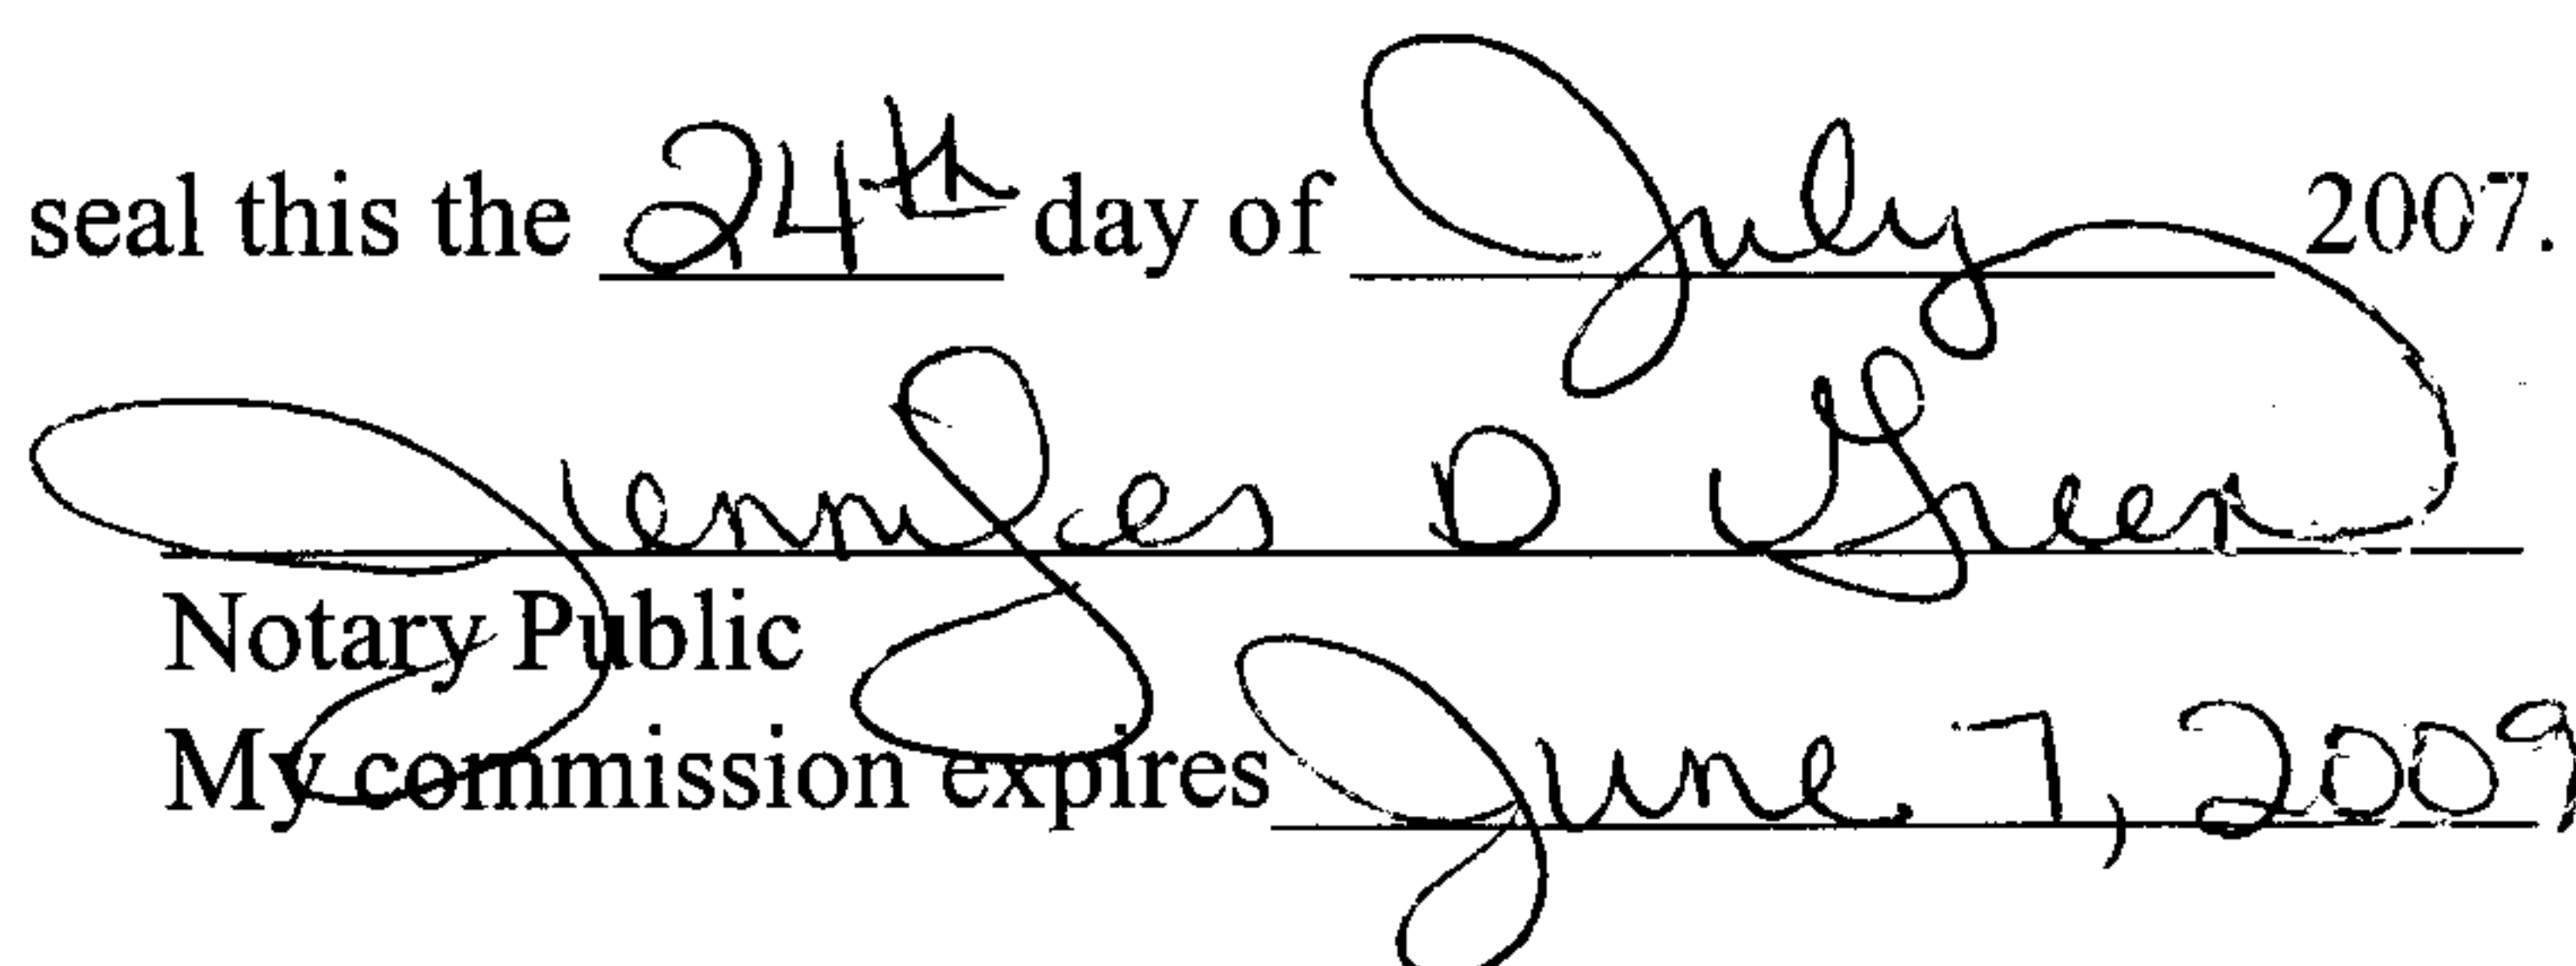 seal this the 24th day of July 2007.
Jennifer D Green
Notary Public
My commission expires June 7, 2009